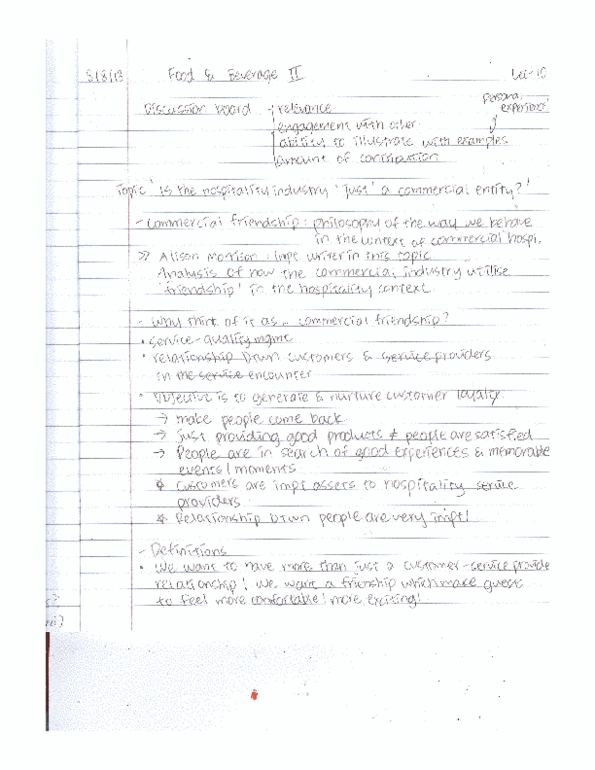 5/8/13 Food & Beverage II Lec-10
Discussion Board - relevance personal experience
engagement with other
ability to illustrate with examples
amount of contribution
Topic 'Is the hospitality industry 'just' a commercial entity?'
- Commercial friendship: philosophy of the way we behave
in the context of commercial hospi.
>> Alison Morrison: impt writer in this topic
Analysis of how the commercial industry utilise
'friendship' in the hospitality context.
- Why think of it as .. commercial friendship?
• service-quality mgmt
• relationship btwn customers & service providers
in the service encounter
• Objective is to generate & nurture customer loyalty.
→ make people come back
→ just providing good products ≠ people are satisfied
→ People are in search of good experiences & memorable
events / moments
* customers are impt assets to hospitality service
providers
* Relationship btwn people are very impt!
- Definitions
• We want to have more than just a customer-service provide
relationship! We want a friendship which make guest
to feel more comfortable! more exciting!